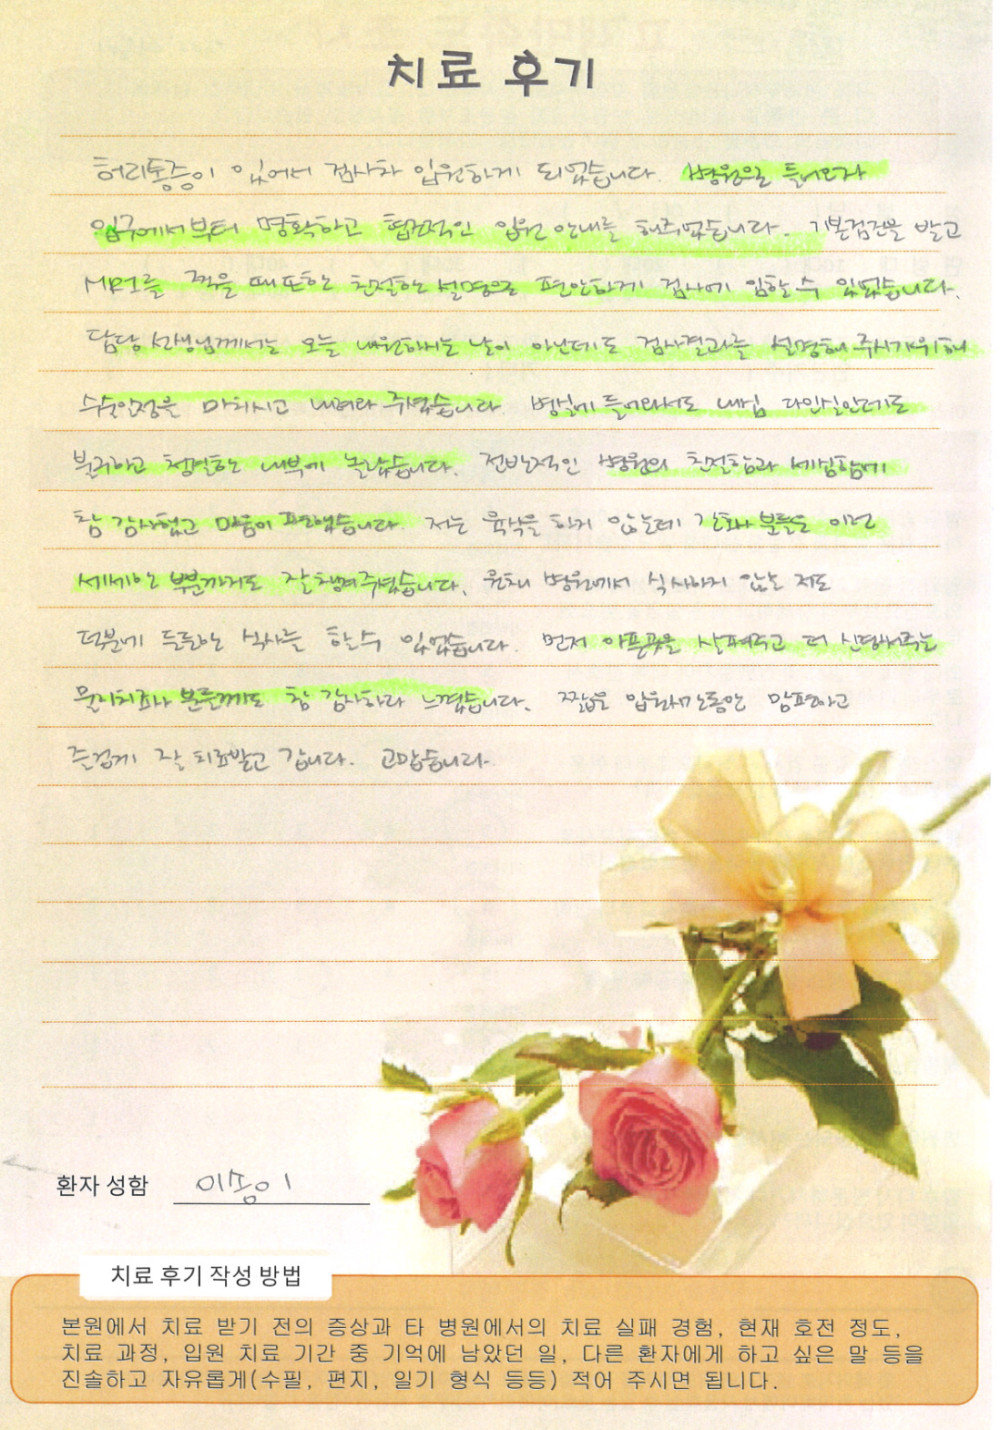 치료 후기
허리통증이 있어서 검사차 입원하게 되었습니다. 병원을 들어오자
입구에서부터 명확하고 협조적인 입원 안내를 해주었습니다. 기본검진을 받고
MRI를 찍을 때 또한 친절한 설명으로 편안하게 검사에 임할 수 있었습니다.
담당 선생님께서는 오늘 내원하시는 날이 아닌데도 검사결과를 설명해 주시기위해
수술일정을 마치시고 내려와 주셨습니다. 병실에 들어와서도 내심 다인실인데도
불구하고 청결한 내부에 놀랐습니다. 전반적인 병원의 친절함과 세심함에
참 감사했고 마음이 편했습니다. 저는 육식을 하지 않는데 간호사 분들은 이런
세세한 부분까지도 잘 챙겨주셨습니다. 원체 병원에서 식사하지 않는 저도
덕분에 든든한 식사를 할 수 있었습니다. 먼저 아픈곳을 살펴주고 더 신경써주는
물리치료사 분들께도 참 감사하다 느꼈습니다. 짧은 입원시간동안 맘편하고
즐겁게 잘 치료받고 갑니다. 고맙습니다.
환자 성함
치료 후기 작성 방법
본원에서 치료 받기 전의 증상과 타 병원에서의 치료 실패 경험, 현재 호전 정도,
치료 과정, 입원 치료 기간 중 기억에 남았던 일, 다른 환자에게 하고 싶은 말 등을
진솔하고 자유롭게(수필, 편지, 일기 형식 등등) 적어 주시면 됩니다.